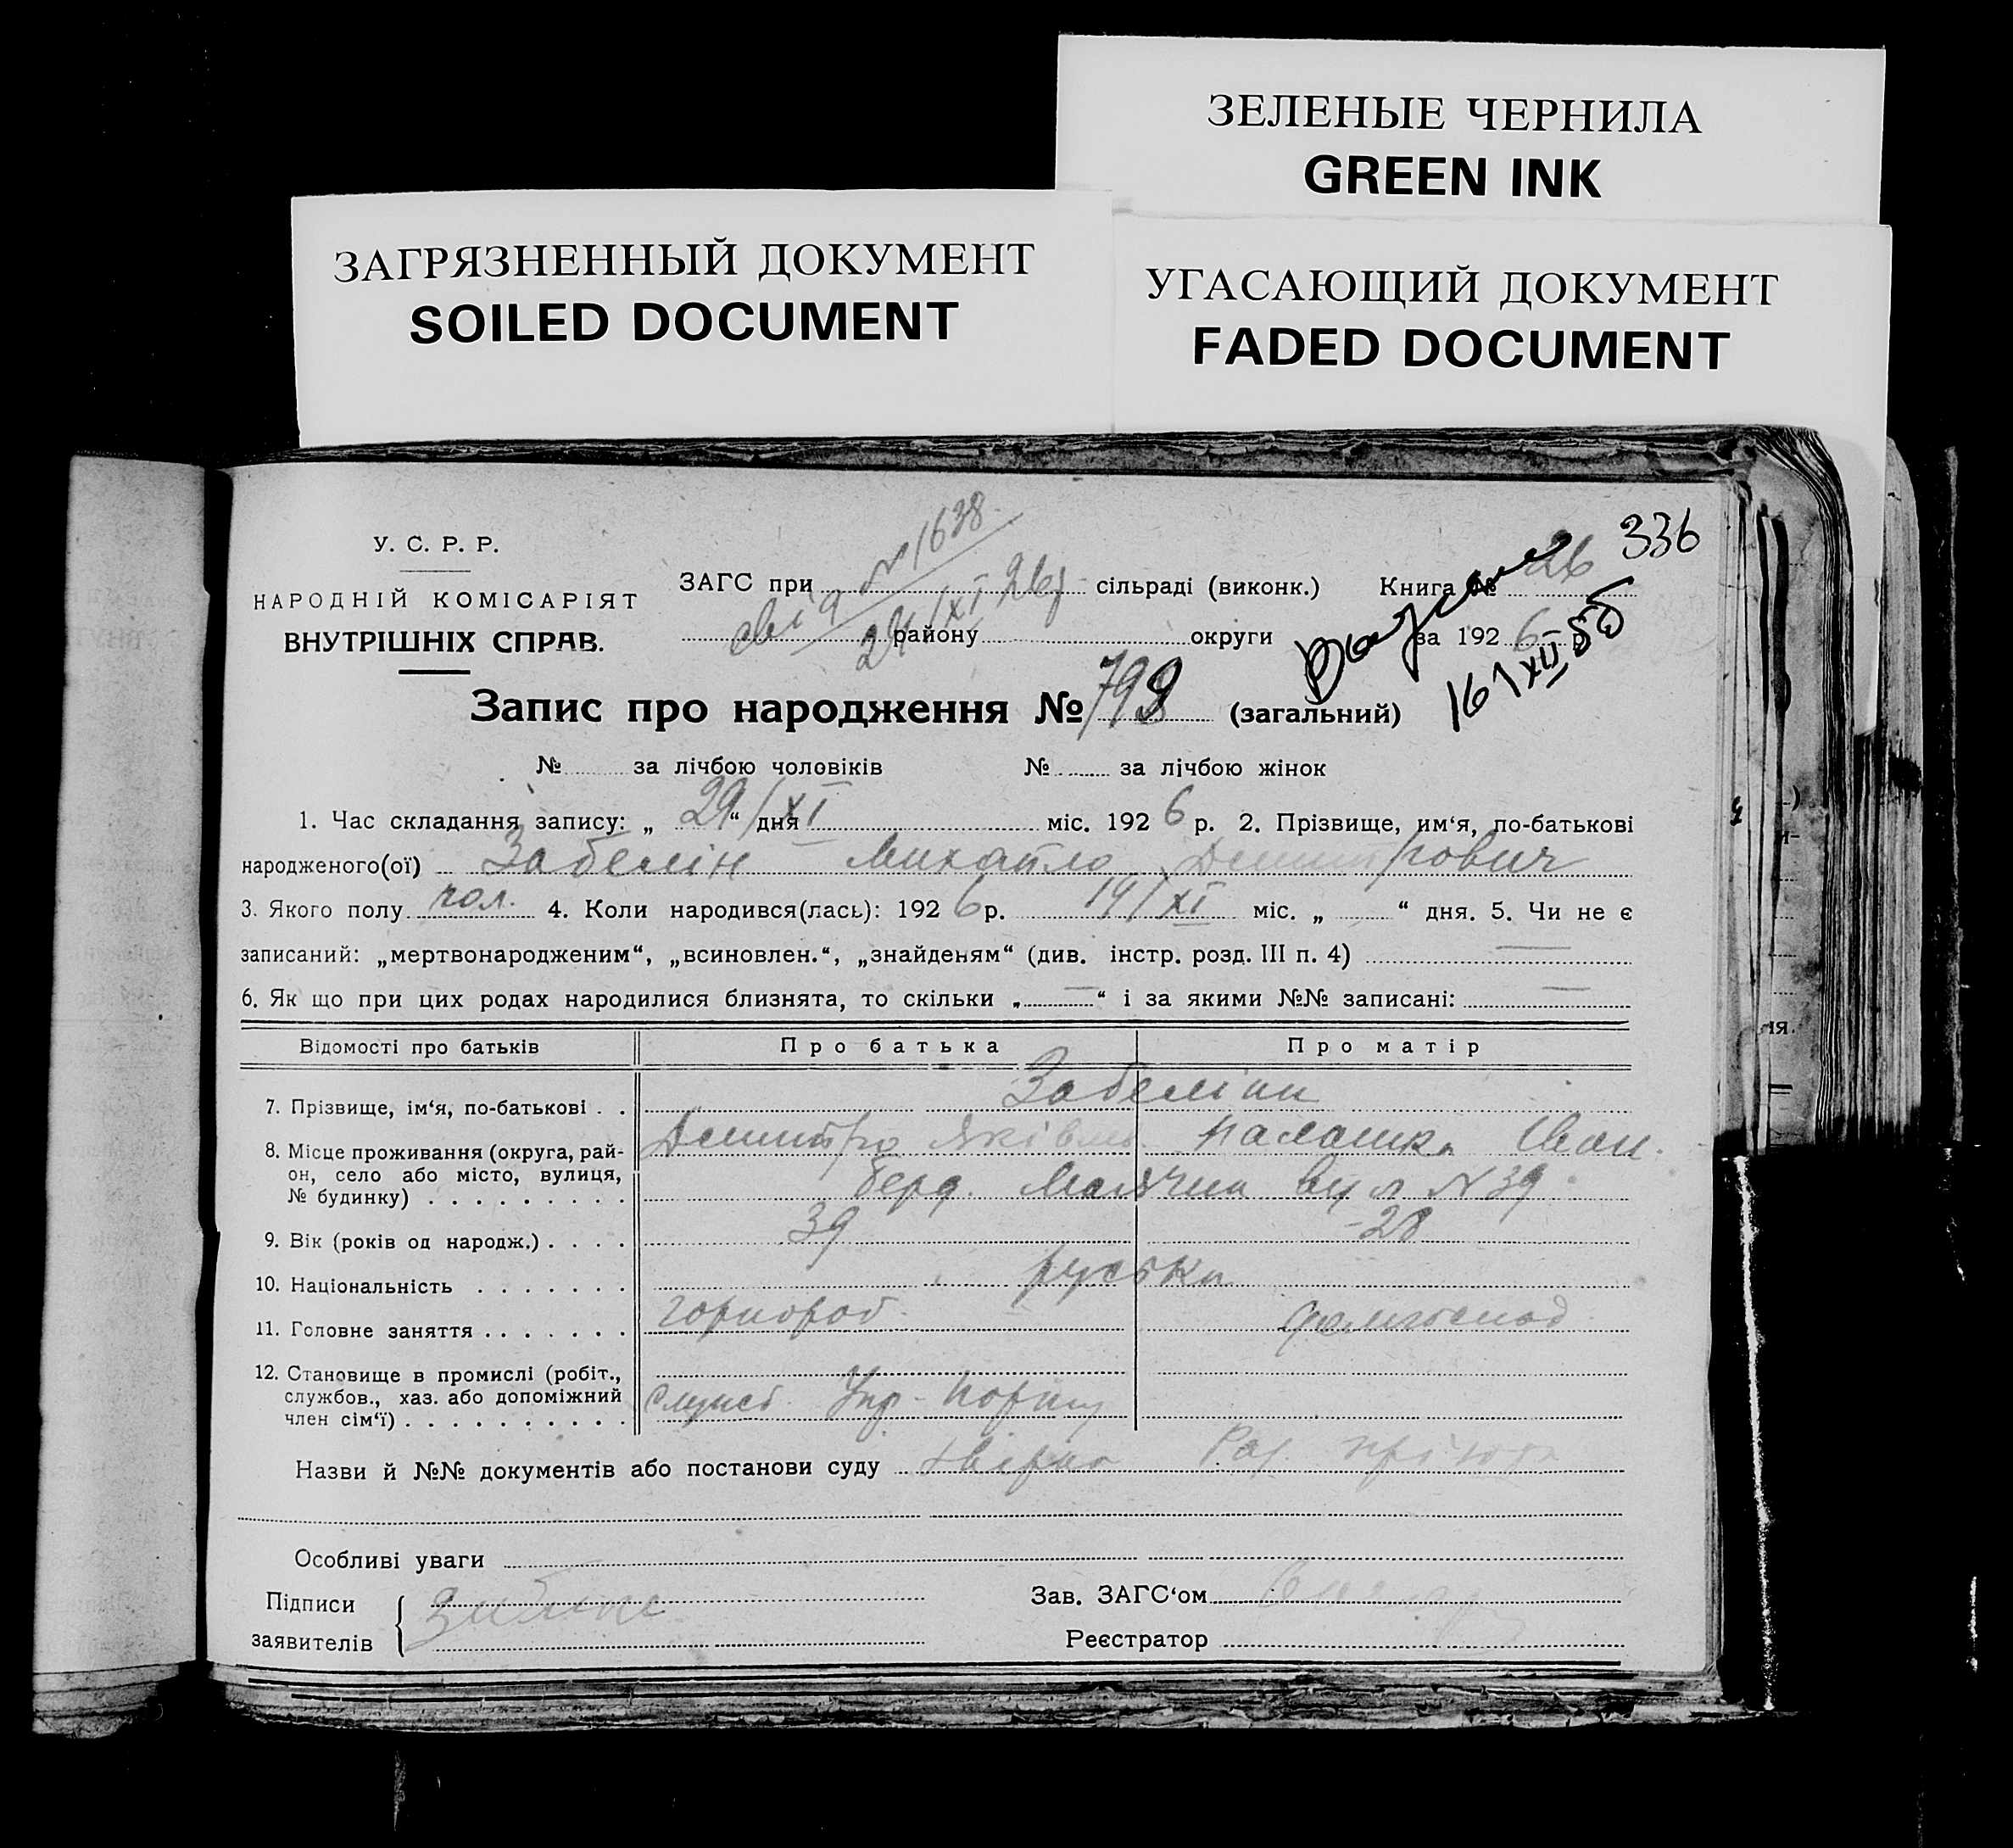 ЗЕЛЕНЫЕ ЧЕРНИЛА
GREEN INK
ЗАГРЯЗНЕННЫЙ ДОКУМЕНТ
SOILED DOCUMENT
УГАСАЮЩИЙ ДОКУМЕНТ
FADED DOCUMENT
336
У. С. Р. Р.
НАРОДНІЙ КОМІСАРІЯТ
ВНУТРІШНІХ СПРАВ.
№ 1638
24/XI 26
ЗАГС при сільраді (виконк.) Книга № 26
району округи за 1926
16/XII 55
Запис про народження № 798 (загальний)
№ за лічбою чоловіків № за лічбою жінок
1. Час складання запису: „29/XI“ дня міс. 1926 р. 2. Прізвище, им‘я, по-батькові
народженого(ої) Забелін Михайло Дмитрович
3. Якого полу чол. 4. Коли народився(лась): 1926 р. 14/XI міс. „ “ дня. 5. Чи не є
записаний: „мертвонародженим“, „всиновлен.“, „знайденям“ (див. інстр. розд. III п. 4) —
6. Як що при цих родах народилися близнята, то скільки „—“ і за якими №№ записані: —
Відомості про батьків Про батька Про матір
7. Прізвище, ім‘я, по-батькові . . Забеліни
Дмитро Яківл. Палажка Іван.
8. Місце проживання (округа, рай-
он, село або місто, вулиця,
№ будинку) . . . . . . . . . берд. вул N 39
9. Вік (років од народж.) . . . . 39 28
10. Національність . . . . . . . руська
11. Головне заняття . . . . . . . чорнороб. домгоспод
12. Становище в промислі (робіт.,
службов., хаз. або допоміжний
член сім‘ї) . . . . . . . . . . служб. Упр. Порту
Назви й №№ документів або постанови суду
Особливі уваги
Підписи
заявителів
Зав. ЗАГС‘ом
Реєстратор